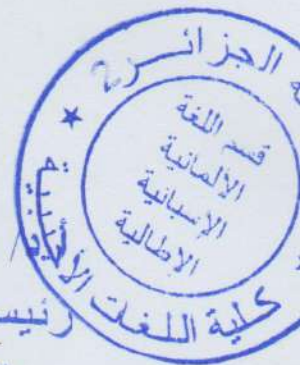 الجزائر2
قسم اللغة
الالمانية
الإسبانية
الإطالية
كلية اللغات الأجنبية
رئيس